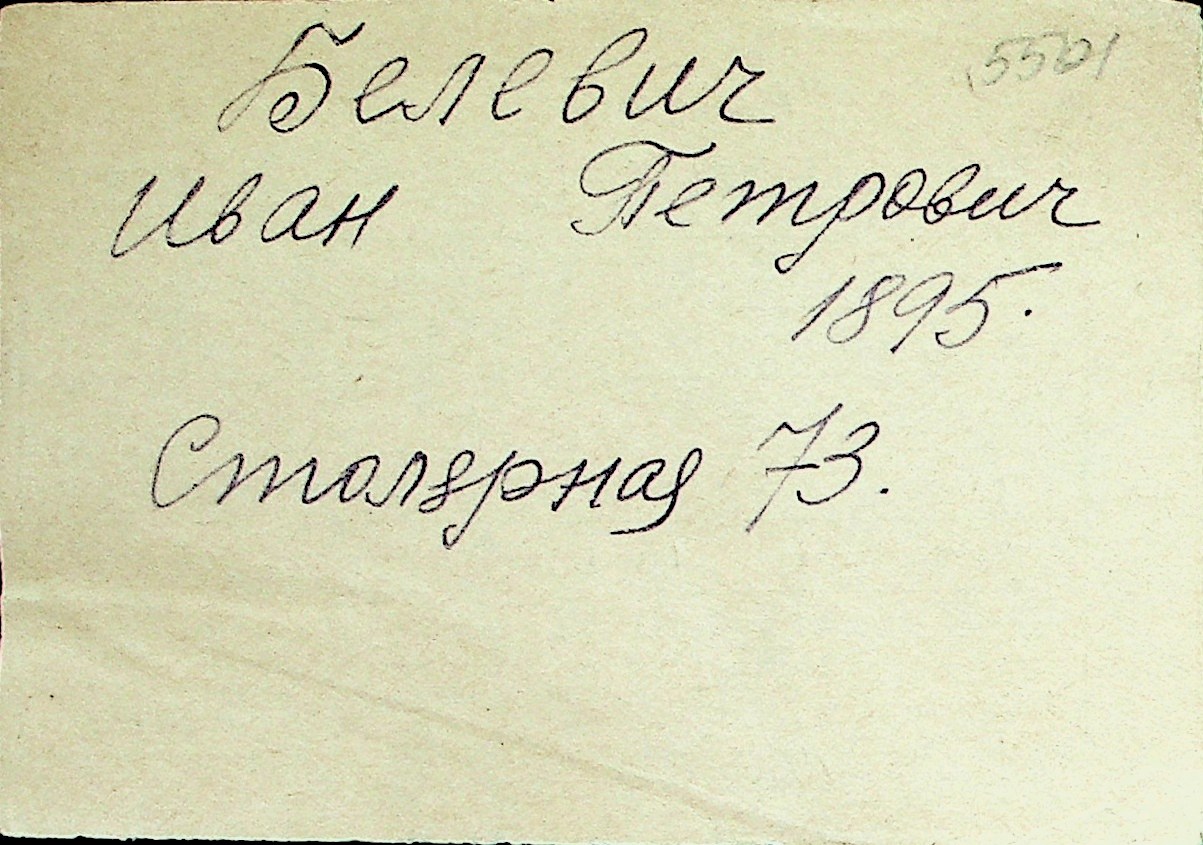 5501
Белевич
Иван Петрович
1895.
Столярная 73.